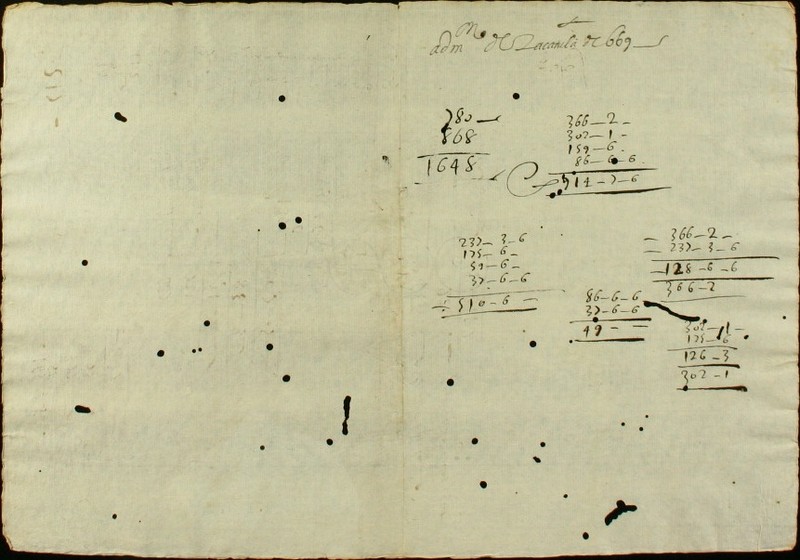 adm.on de de 669
780
868
1648
366—2—
302—1—
159—6—
86—6—6
914—7—6
237—3—6
175—6—
59—6—
37—6—6
510—6—
366—2—
237—3—6
128—6—6
366—2
86—6—6
37—6—6
49— —
302—1—
175—6
126—3
302—1